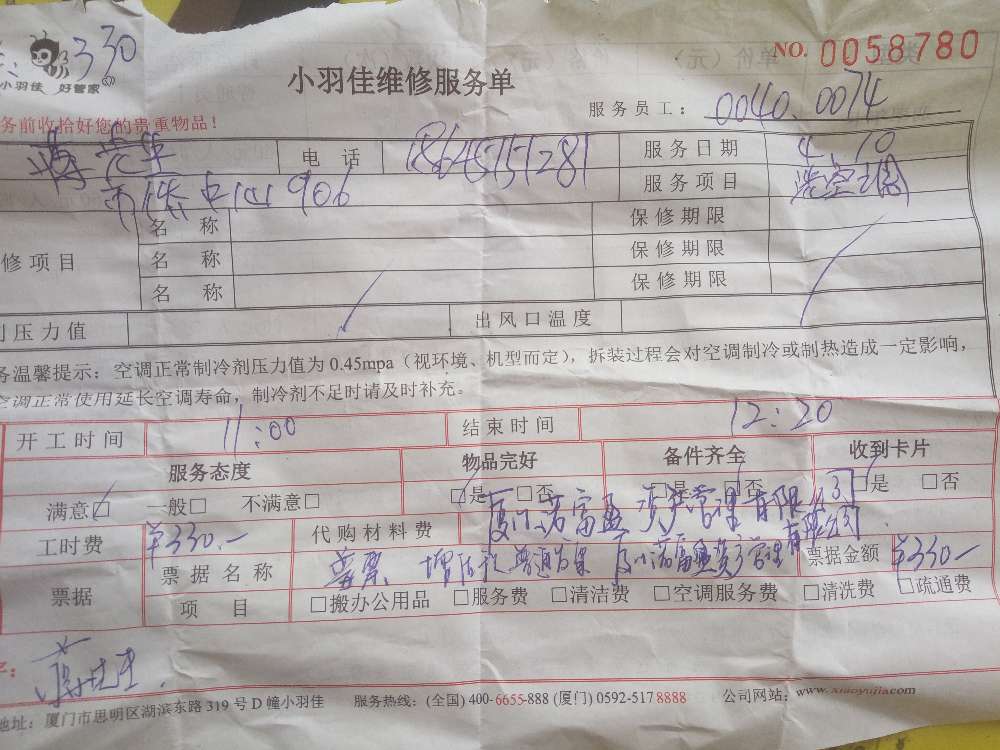 330
小羽佳 好管家
NO. 0058780
小羽佳维修服务单
服务员工: 0040.0074
务前收拾好您的贵重物品!
电话 服务日期 4 10
906 服务项目 洗空调
名称 保修期限
修项目 名称 保修期限
名称 保修期限
压力值 出风口温度
务温馨提示: 空调正常制冷剂压力值为 0.45mpa (视环境、机型而定), 拆装过程会对空调制冷或制热造成一定影响,
空调正常使用延长空调寿命, 制冷剂不足时请及时补充。
开工时间 11:00 结束时间 12:20
服务态度 物品完好 备件齐全 收到卡片
满意□ 一般□ 不满意□ □是 □否 □是 □否 □是 □否
工时费 ¥330.- 代购材料费 厦门诺富盈资产管理有限公司
票据 票据名称 普票 增值税普通发票 厦门诺富盈资产管理有限公司 票据金额 ¥330-
项目 □搬办公用品 □服务费 □清洁费 □空调服务费 □清洗费 □疏通费
地址: 厦门市思明区湖滨东路 319 号 D 幢小羽佳 服务热线: (全国) 400-6655-888 (厦门) 0592-517 8888 公司网站: www.xiaoyujia.com